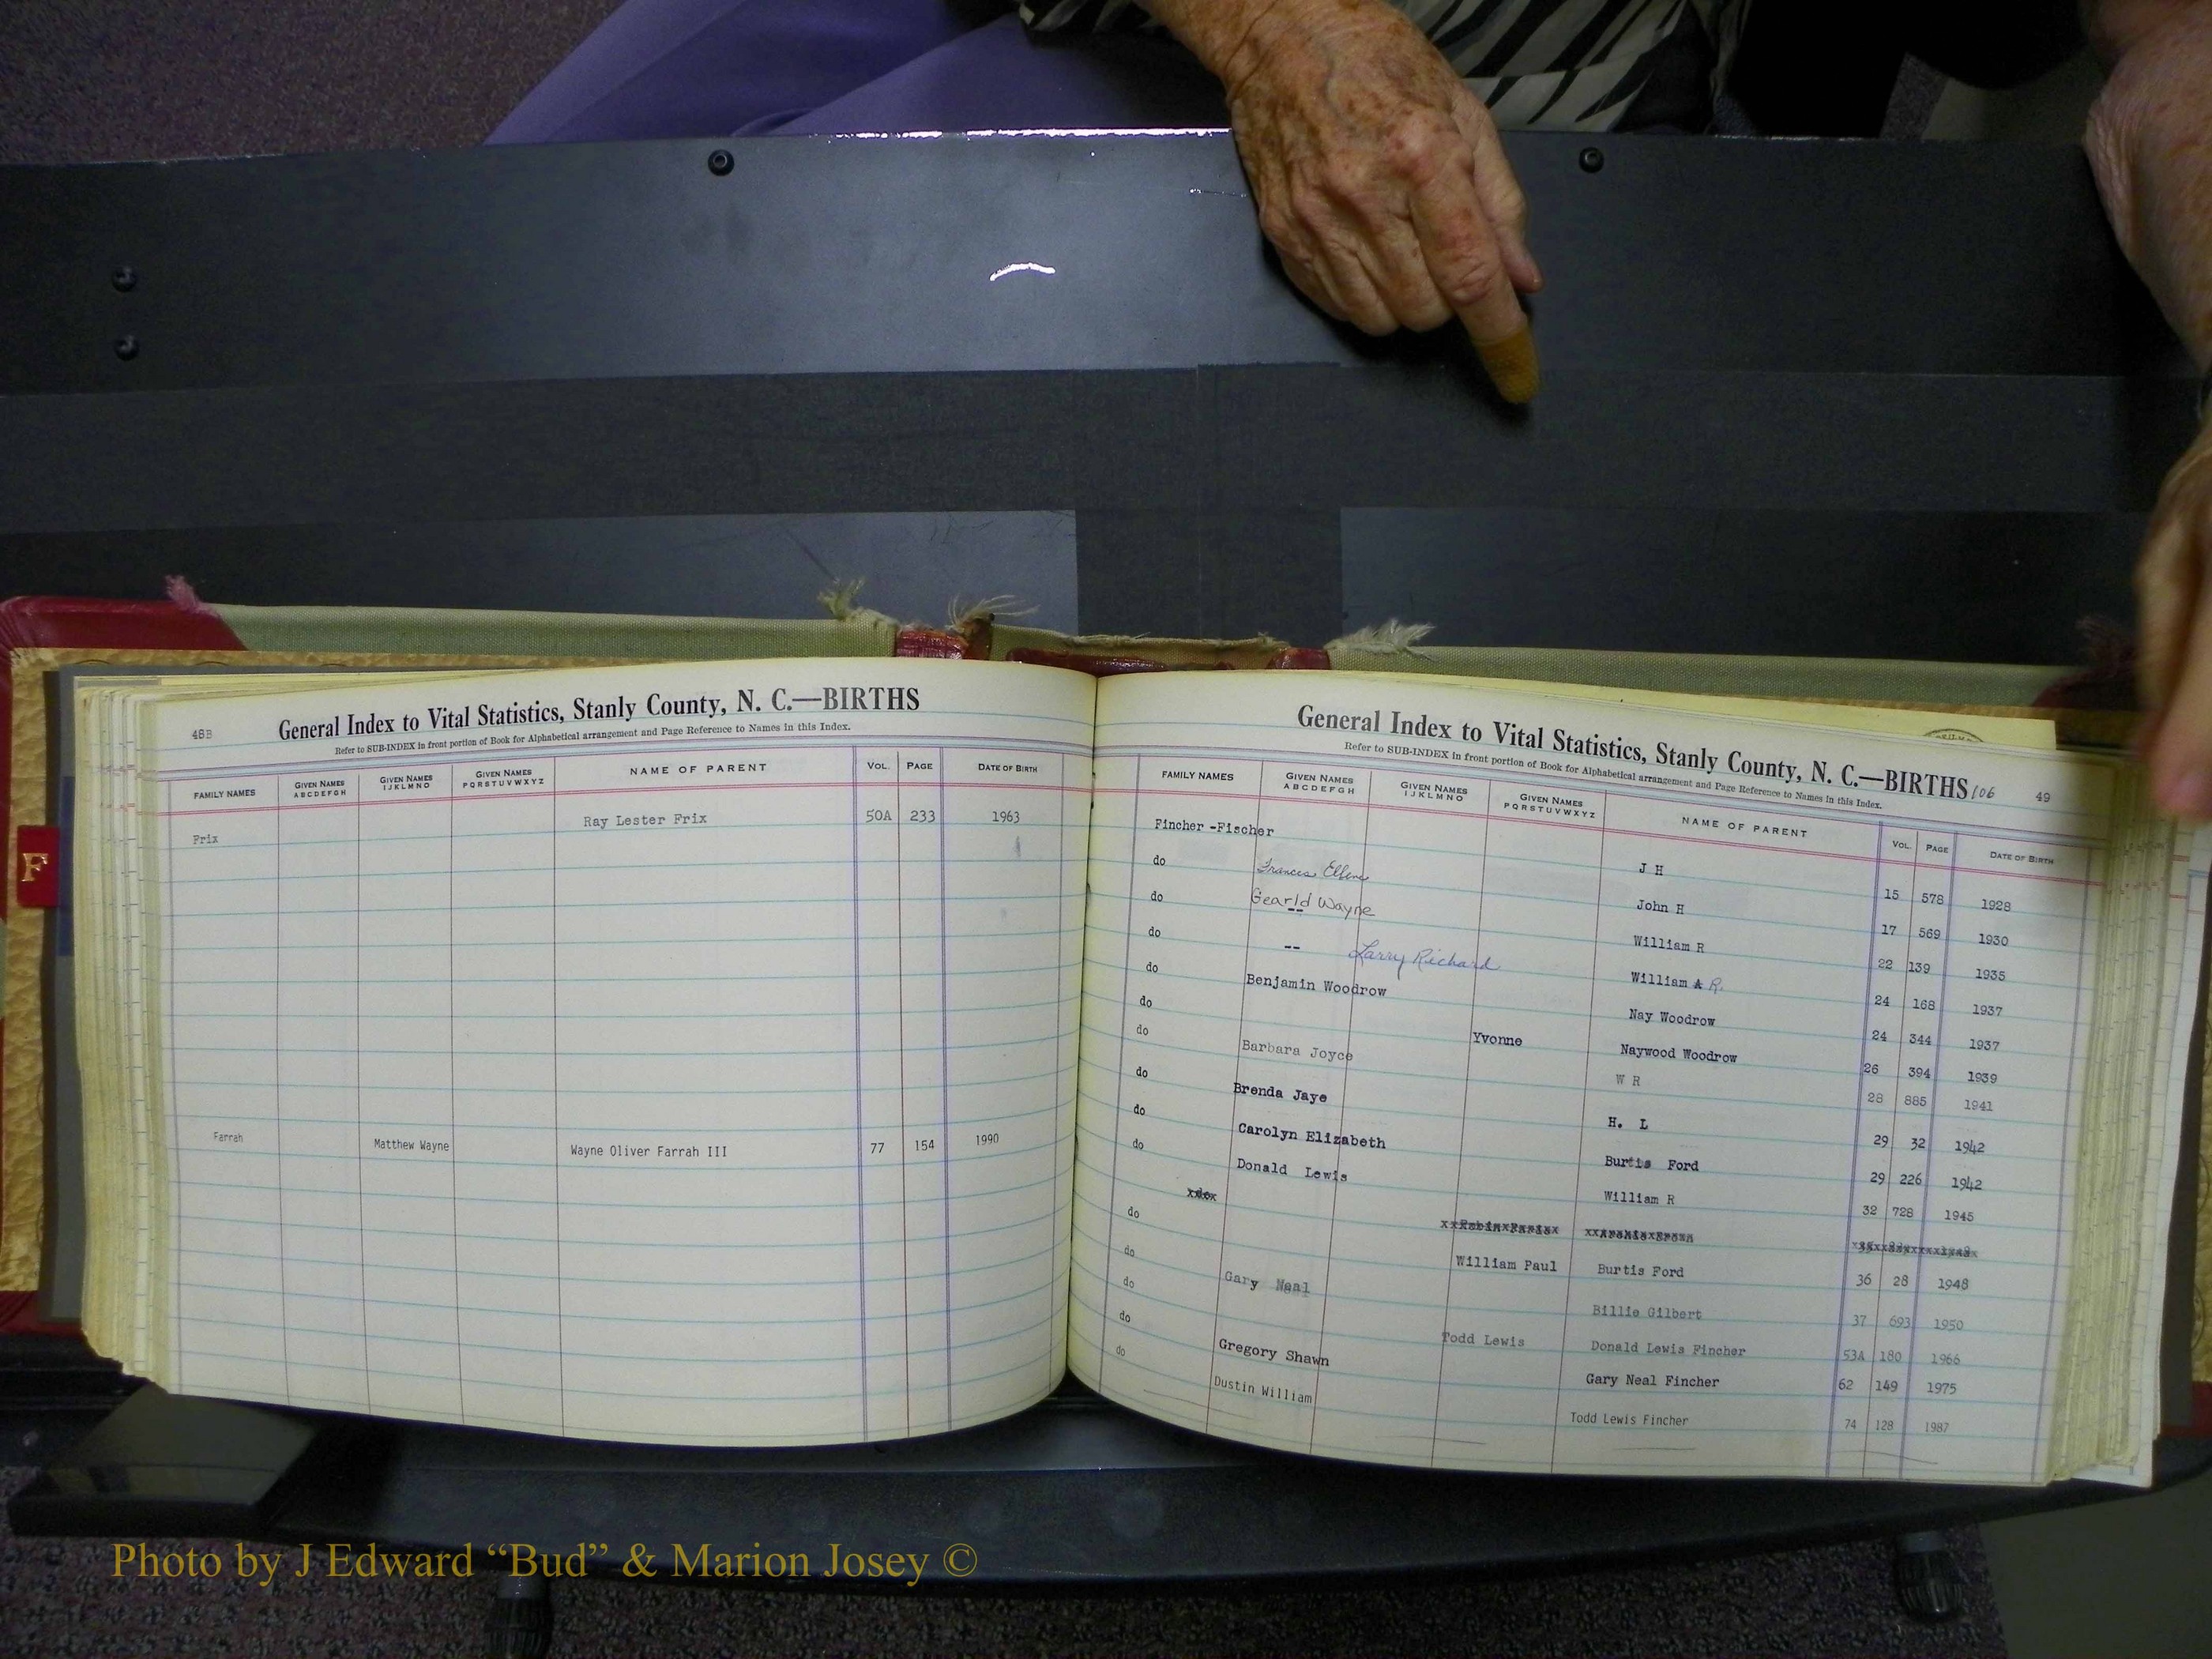 48B
General Index to Vital Statistics, Stanly County, N. C.—BIRTHS
Refer to SUB-INDEX in front portion of Book for Alphabetical arrangement and Page Reference to Names in this Index.
FAMILY NAMES GIVEN NAMES ABCDEFGH GIVEN NAMES IJKLMNO GIVEN NAMES PQRSTUVWXYZ NAME OF PARENT VOL. PAGE DATE OF BIRTH
Frix Ray Lester Frix 50A 233 1963
Farrah Matthew Wayne Wayne Oliver Farrah III 77 154 1990
F
General Index to Vital Statistics, Stanly County, N. C.—BIRTHS 106 49
Refer to SUB-INDEX in front portion of Book for Alphabetical arrangement and Page Reference to Names in this Index.
FAMILY NAMES GIVEN NAMES ABCDEFGH GIVEN NAMES IJKLMNO GIVEN NAMES PQRSTUVWXYZ NAME OF PARENT VOL. PAGE DATE OF BIRTH
Fincher -Fischer J H 15 578 1928
do Frances Ellene John H 17 569 1930
do Gearld Wayne -- William R 22 139 1935
do -- Larry Richard William A R. 24 168 1937
do Benjamin Woodrow Nay Woodrow 24 344 1937
do Yvonne Naywood Woodrow 26 394 1939
do Barbara Joyce W R 28 885 1941
do Brenda Jaye H. L 29 32 1942
do Carolyn Elizabeth Burtis Ford 29 226 1942
do Donald Lewis William R 32 728 1945
do William Paul Burtis Ford 36 28 1948
do Gary Neal Billie Gilbert 37 693 1950
do Todd Lewis Donald Lewis Fincher 53A 180 1966
do Gregory Shawn Gary Neal Fincher 62 149 1975
do Dustin William Todd Lewis Fincher 74 128 1987
Photo by J Edward “Bud” & Marion Josey ©